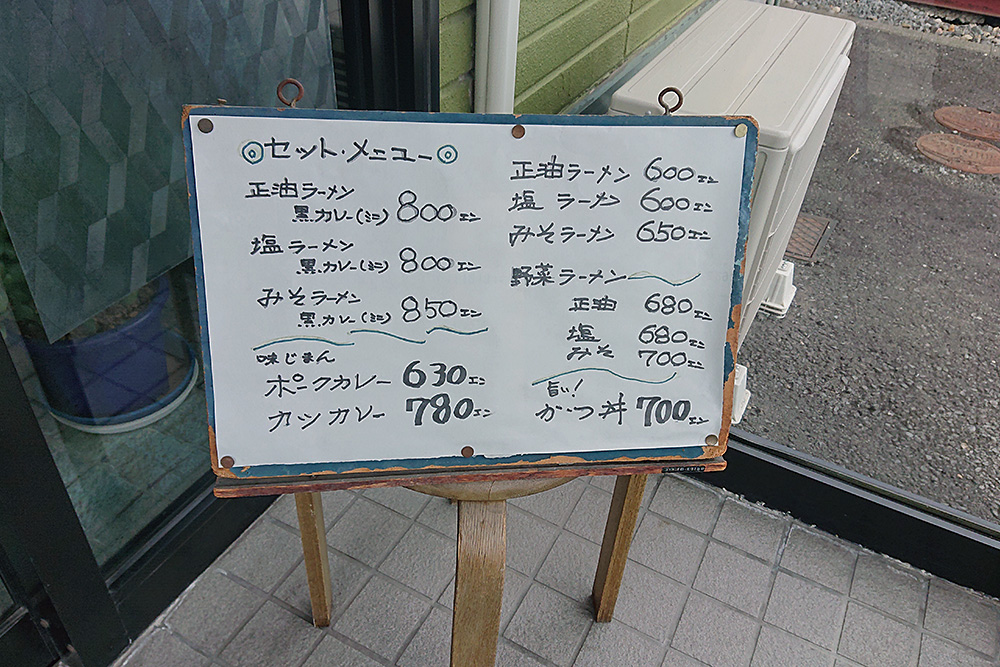 ◎セット・メニュー◎
正油ラーメン
黒カレー(ミニ) 800エン
塩ラーメン
黒カレー(ミニ) 800エン
みそラーメン
黒カレー(ミニ) 850エン
味じまん
ポークカレー 630エン
カツカレー 780エン
正油ラーメン 600エン
塩ラーメン 600エン
みそラーメン 650エン
野菜ラーメン
正油 680エン
塩 680エン
みそ 700エン
旨い!
かつ丼 700エン